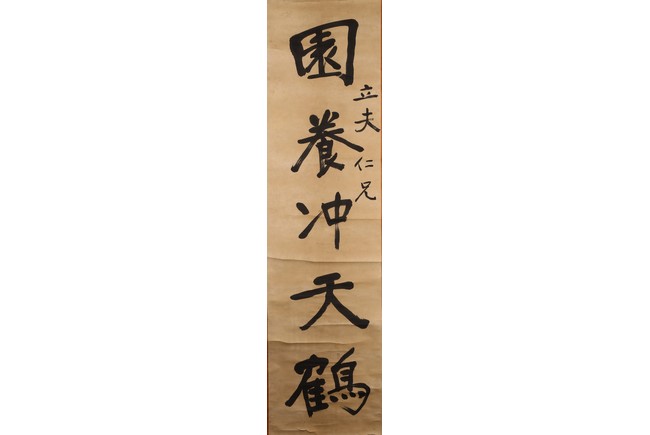 園養冲天鶴
立夫仁兄